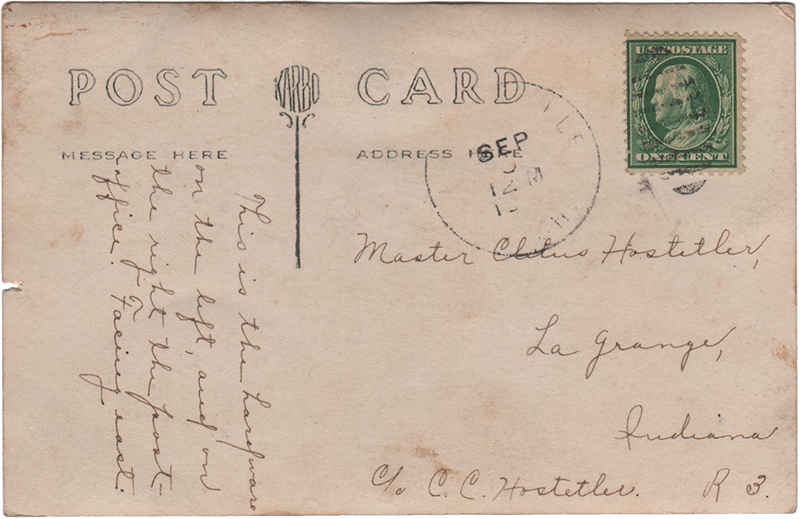 POST CARD
KARBO
MESSAGE HERE
ADDRESS HERE
U.S. POSTAGE
ONE CENT
SEP
This is the hardware
on the left, and on
the right the post-
office. Facing east.
Master Cletus Hostetler,
La Grange,
Indiana
c/o C. C. Hostetler. R 3.